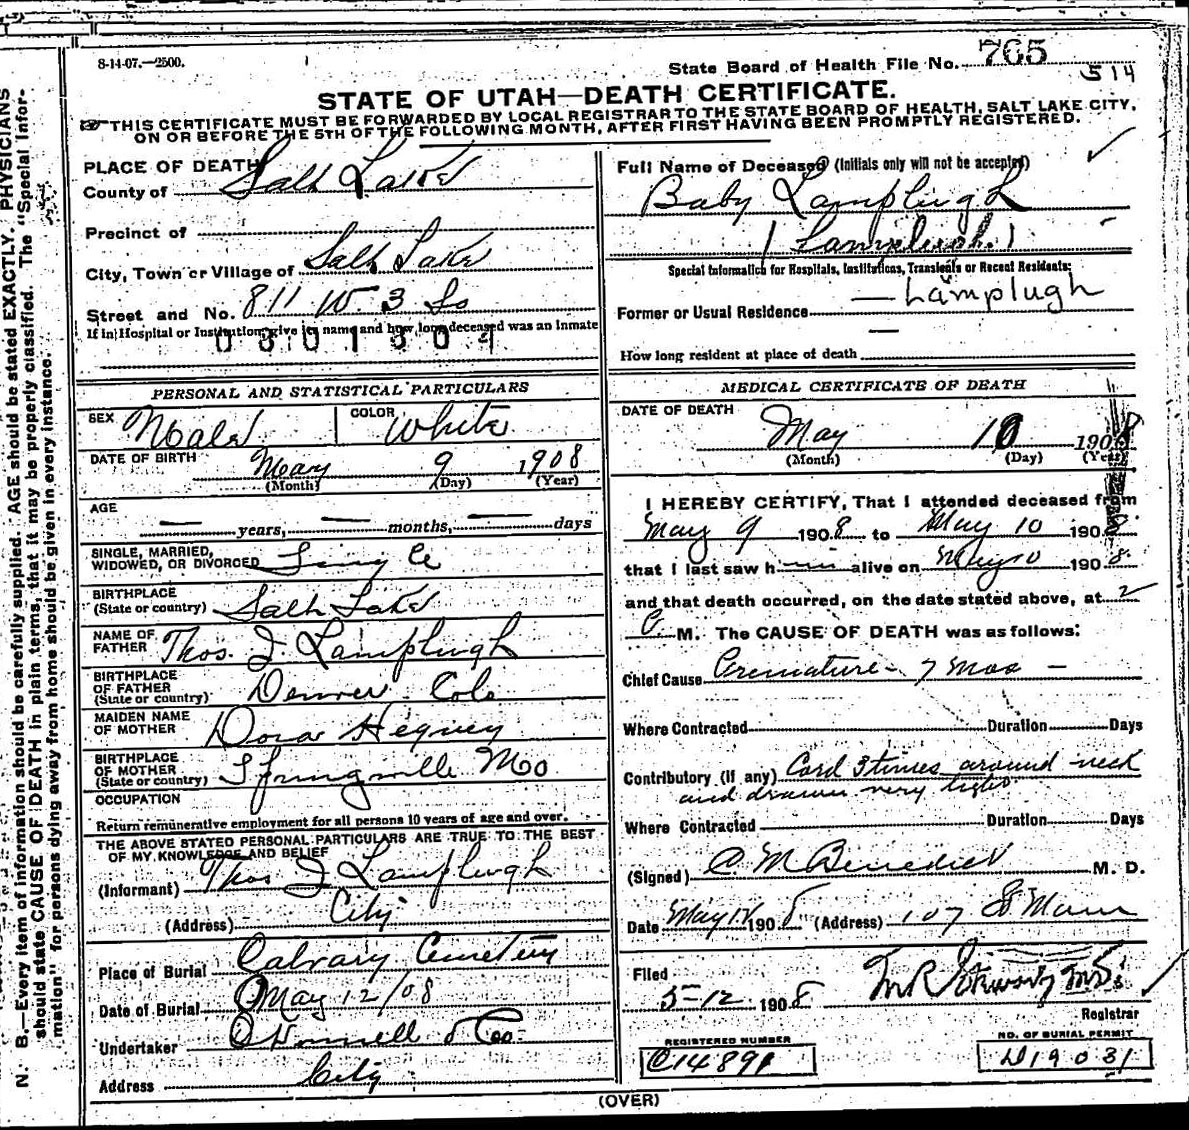 8-14-07.—2500.
State Board of Health File No. 765
514
STATE OF UTAH—DEATH CERTIFICATE.
THIS CERTIFICATE MUST BE FORWARDED BY LOCAL REGISTRAR TO THE STATE BOARD OF HEALTH, SALT LAKE CITY,
ON OR BEFORE THE 5TH OF THE FOLLOWING MONTH, AFTER FIRST HAVING BEEN PROMPTLY REGISTERED.
PLACE OF DEATH
County of Salt Lake
Precinct of
City, Town or Village of Salt Lake
Street and No. 811 W. 3 So
If in Hospital or Institution, give its name and how long deceased was an Inmate
0301304
PERSONAL AND STATISTICAL PARTICULARS
SEX Male COLOR White
DATE OF BIRTH May 9 1908
(Month) (Day) (Year)
AGE — years, — months, — days
SINGLE, MARRIED,
WIDOWED, OR DIVORCED Single
BIRTHPLACE
(State or country) Salt Lake
NAME OF
FATHER Thos. J Lamplugh
BIRTHPLACE
OF FATHER
(State or country) Denver Colo
MAIDEN NAME
OF MOTHER Dora Hegney
BIRTHPLACE
OF MOTHER
(State or country) Springville Mo
OCCUPATION
Return remunerative employment for all persons 10 years of age and over.
THE ABOVE STATED PERSONAL PARTICULARS ARE TRUE TO THE BEST
OF MY KNOWLEDGE AND BELIEF
(Informant) Thos J Lamplugh
(Address) City
Place of Burial Calvary Cemetery
Date of Burial May 12/08
Undertaker O'Donnell & Co.
Address City
Full Name of Deceased (Initials only will not be accepted)
Baby Lamplugh
(Lamplugh.)
Special Information for Hospitals, Institutions, Transients or Recent Residents:
— Lamplugh
Former or Usual Residence —
How long resident at place of death
MEDICAL CERTIFICATE OF DEATH
DATE OF DEATH May 10 1908
(Month) (Day) (Year)
I HEREBY CERTIFY, That I attended deceased from
May 9 1908 to May 10 1908
that I last saw h im alive on May 10 1908
and that death occurred, on the date stated above, at 2
M. The CAUSE OF DEATH was as follows:
Chief Cause Premature - 7 Mos —
Where Contracted Duration Days
Contributory (if any) Cord 3 times around neck
and drawn very tight
Where Contracted Duration Days
(Signed) C M Benedict M. D.
Date May 12 1908 (Address) 107 So Main
Filed
5-12 1908
Registrar
REGISTERED NUMBER
C14891
NO. OF BURIAL PERMIT
D19031
(OVER)
N. B.—Every item of information should be carefully supplied. AGE should be stated EXACTLY. PHYSICIANS
should state CAUSE OF DEATH in plain terms, that it may be properly classified. The "Special Infor-
mation" for persons dying away from home should be given in every instance.